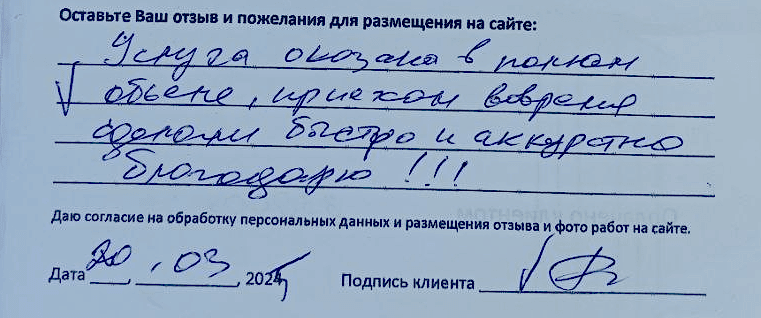 Оставьте Ваш отзыв и пожелания для размещения на сайте:
Услуга оказана в полном
объеме, приехал вовремя
сделали быстро и аккуратно
благодарю !!!
Даю согласие на обработку персональных данных и размещения отзыва и фото работ на сайте.
Дата 20 . 03 2025
Подпись клиента